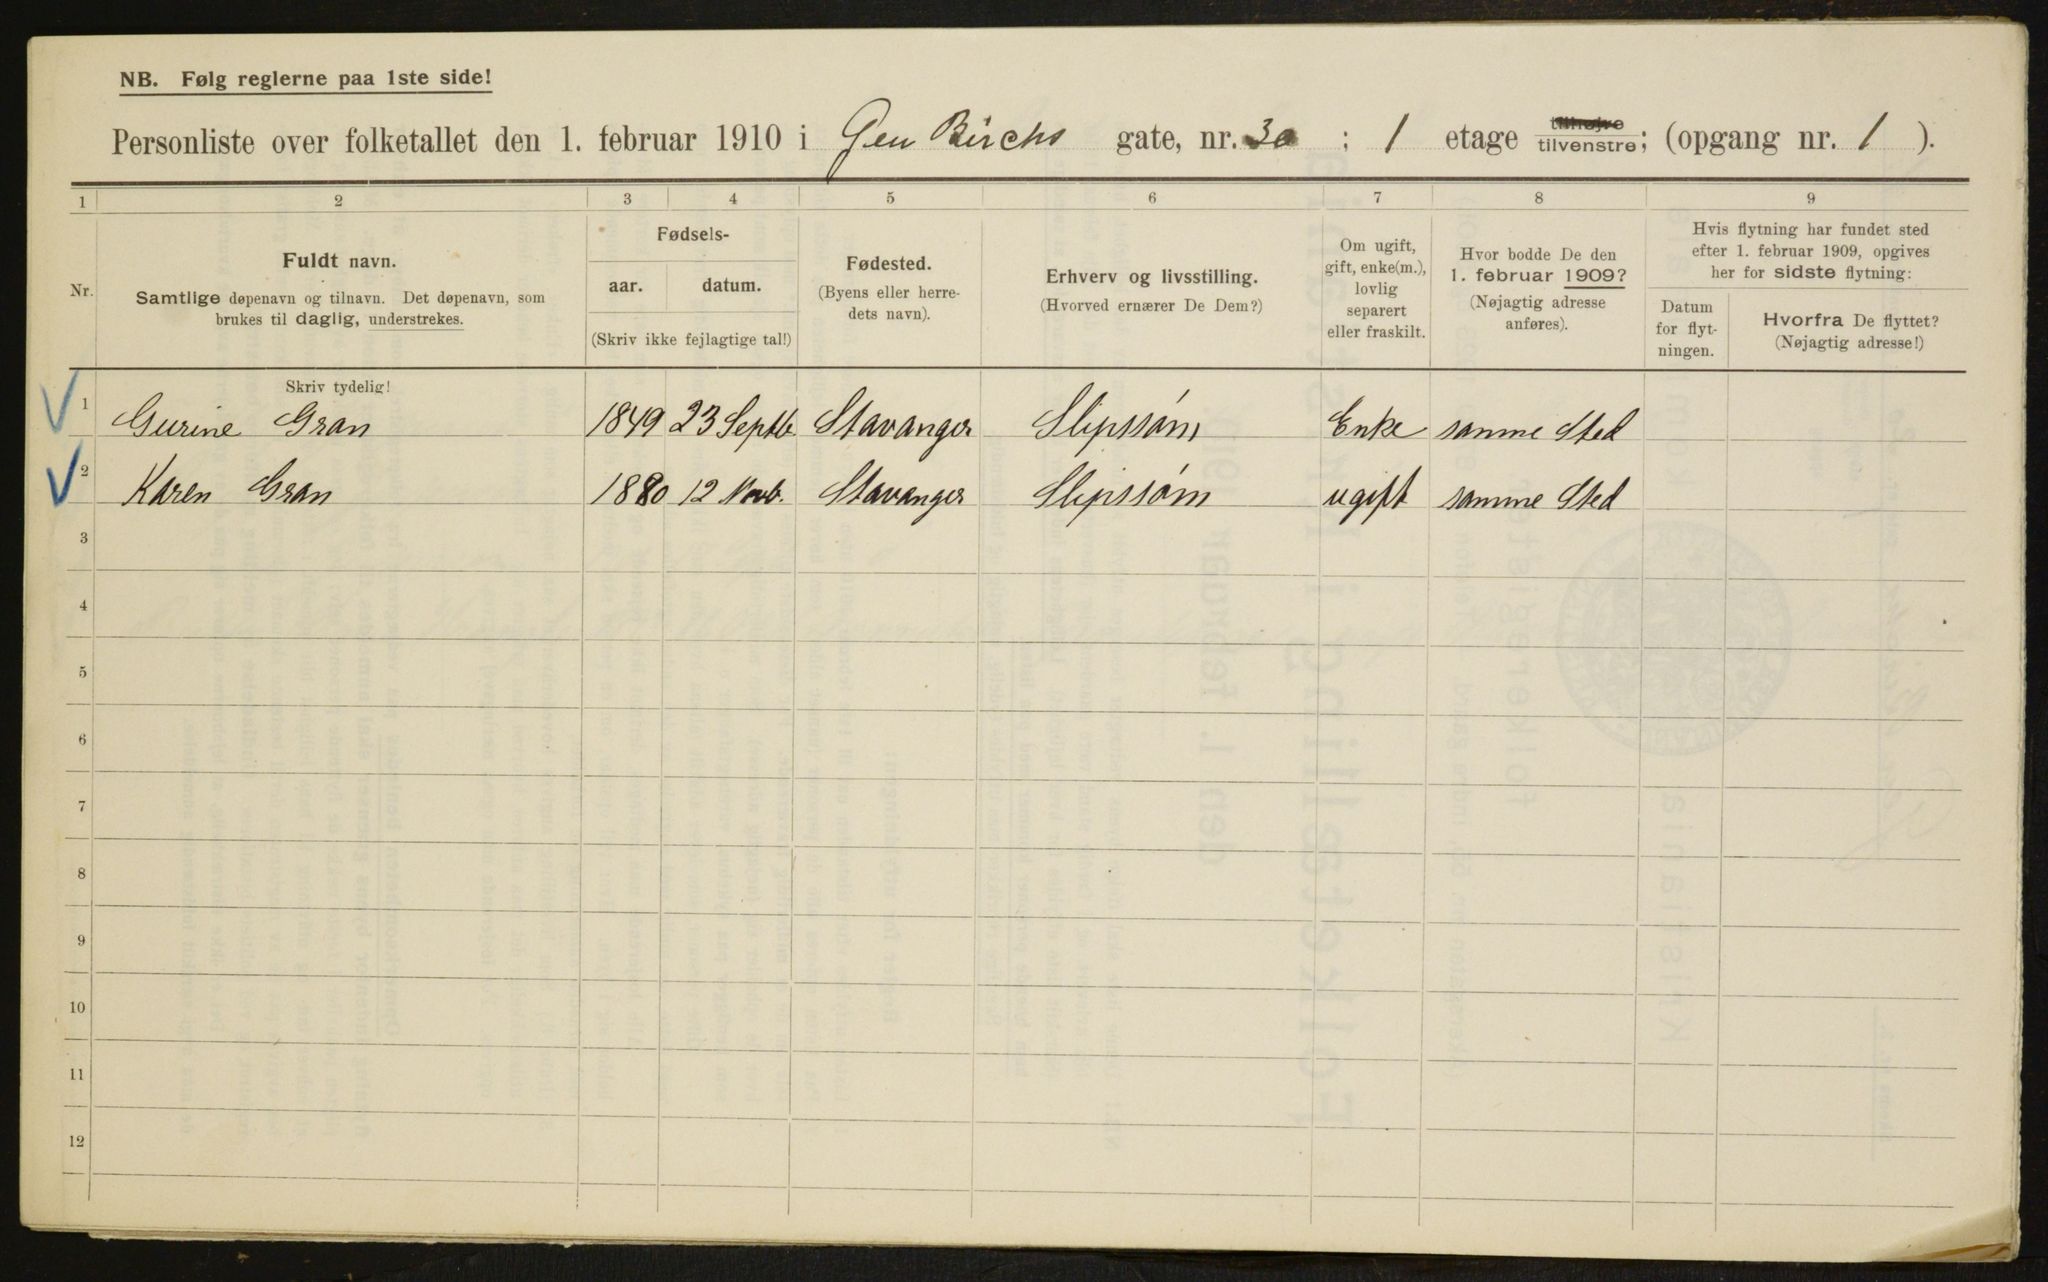 NB. Følg reglerne paa 1ste side!
Personliste over folketallet den 1. februar 1910 i Gen Birchs gate, nr. 30 ; 1 etage tilhøjre tilvenstre; (opgang nr. 1 ).
1 2 3 4 5 6 7 8 9
Nr.
Fuldt navn.
Samtlige døpenavn og tilnavn. Det døpenavn, som
brukes til daglig, understrekes.
Fødsels-
aar. datum.
(Skriv ikke fejlagtige tal!)
Fødested.
(Byens eller herre-
dets navn).
Erhverv og livsstilling.
(Hvorved ernærer De Dem?)
Om ugift,
gift, enke(m.),
lovlig
separert
eller fraskilt.
Hvor bodde De den
1. februar 1909?
(Nøjagtig adresse
anføres).
Hvis flytning har fundet sted
efter 1. februar 1909, opgives
her for sidste flytning:
Datum
for flyt-
ningen.
Hvorfra De flyttet?
(Nøjagtig adresse!)
Skriv tydelig!
1 Gurine Gran 1849 23 Septb. Stavanger Slipssøm Enke samme Sted
2 Karen Gran 1880 12 Novb. Stavanger Slipssøm ugift samme Sted
3
4
5
6
7
8
9
10
11
12